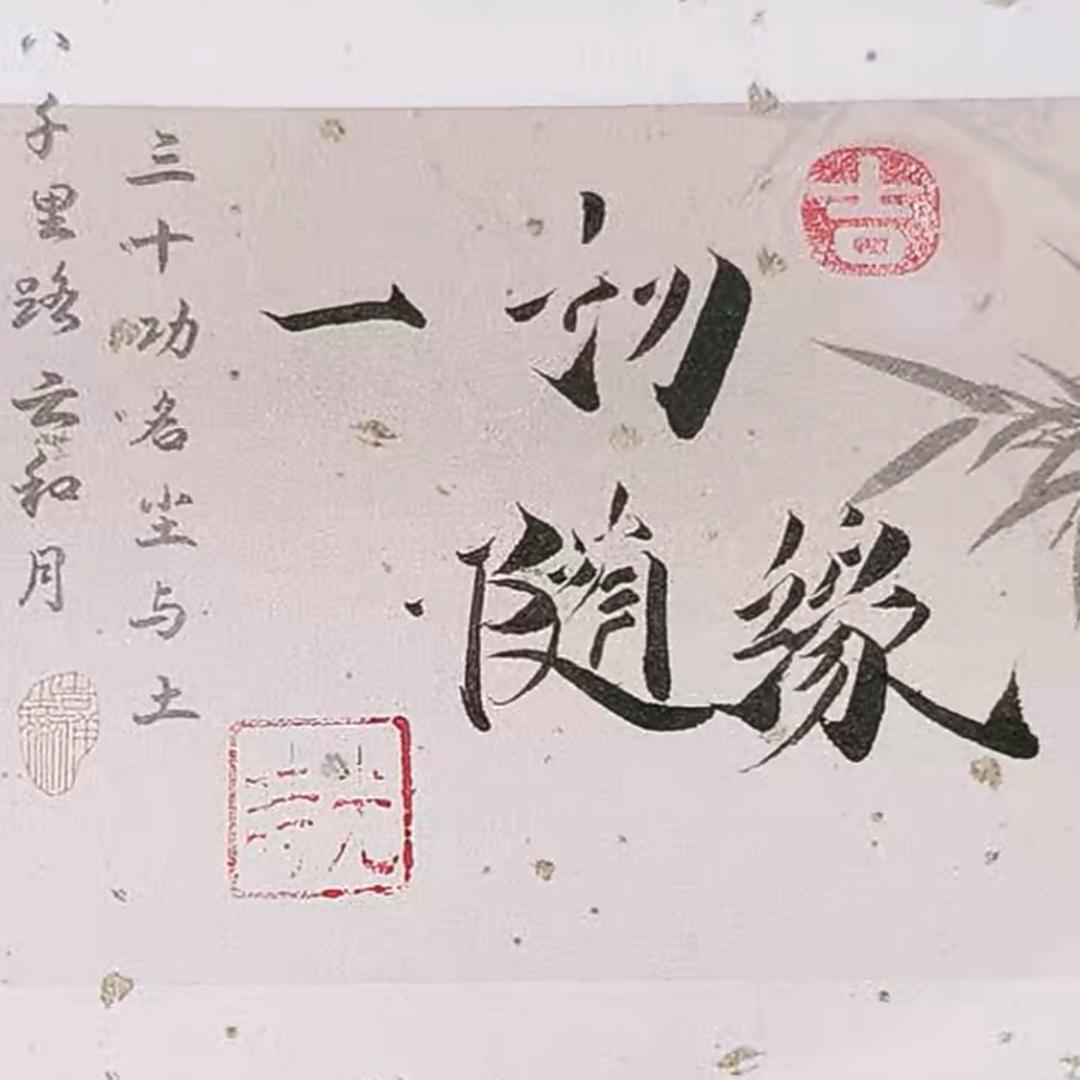 一切
随缘
三十功名尘与土
八千里路云和月
吉